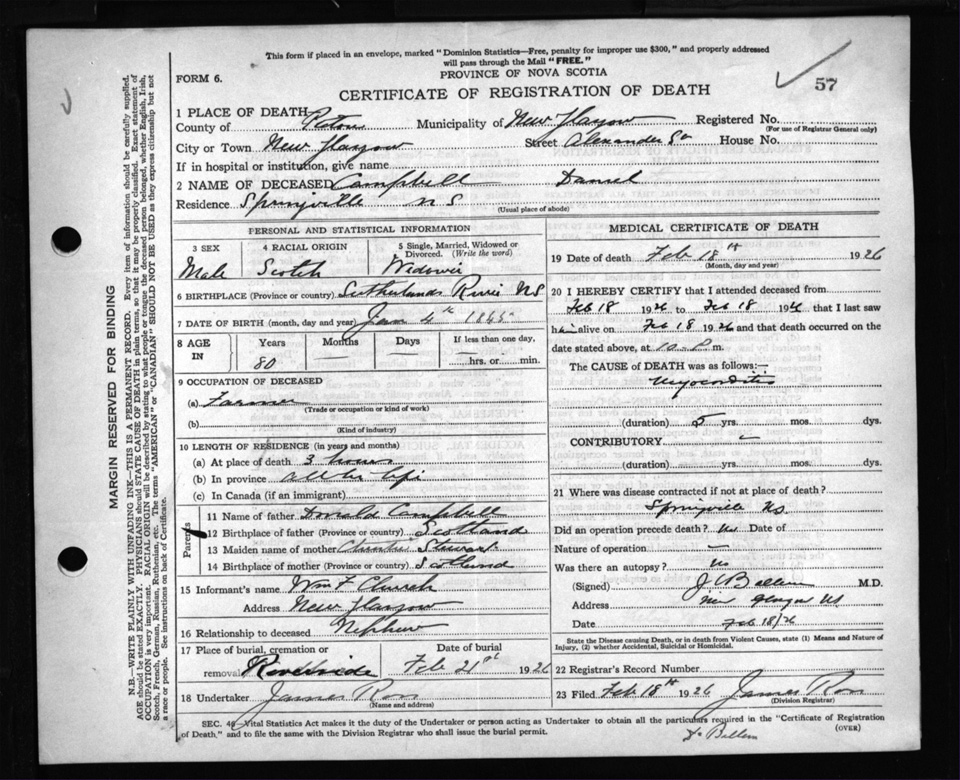 This form if placed in an envelope, marked "Dominion Statistics—Free, penalty for improper use $300," and properly addressed
will pass through the Mail "FREE."
FORM 6.
PROVINCE OF NOVA SCOTIA
57
CERTIFICATE OF REGISTRATION OF DEATH
1 PLACE OF DEATH
County of Pictou Municipality of New Glasgow Registered No.
(For use of Registrar General only)
City or Town New Glasgow Street Alexander House No.
If in hospital or institution, give name
2 NAME OF DECEASED Campbell Daniel
Residence Springville N S
(Usual place of abode)
PERSONAL AND STATISTICAL INFORMATION
3 SEX 4 RACIAL ORIGIN 5 Single, Married, Widowed or Divorced. (Write the word)
Male Scotch Widower
6 BIRTHPLACE (Province or country) Sutherlands River NS
7 DATE OF BIRTH (month, day and year) Jan 4th
8 AGE IN Years Months Days If less than one day,
80 — — hrs. or min.
9 OCCUPATION OF DECEASED
(a) Farmer
(Trade or occupation or kind of work)
(b)
(Kind of industry)
10 LENGTH OF RESIDENCE (in years and months)
(a) At place of death 3 hours
(b) In province All his life
(c) In Canada (if an immigrant)
Parents
11 Name of father Donald Campbell
12 Birthplace of father (Province or country) Scotland
13 Maiden name of mother Stewart
14 Birthplace of mother (Province or country) Scotland
15 Informant's name Wm F Church
Address New Glasgow
16 Relationship to deceased Nephew
17 Place of burial, cremation or removal Riverside Date of burial Feb 21st 1926
18 Undertaker James Ross
(Name and address)
MEDICAL CERTIFICATE OF DEATH
19 Date of death Feb 18th 1926
(Month, day and year)
20 I HEREBY CERTIFY that I attended deceased from
Feb 18 1926 to Feb 18 1926 that I last saw
him alive on Feb 18 1926 and that death occurred on the
date stated above, at 10 P m.
The CAUSE of DEATH was as follows:—
Myocarditis
(duration) 5 yrs. mos. dys.
CONTRIBUTORY
(duration) yrs. mos. dys.
21 Where was disease contracted if not at place of death?
Springville NS.
Did an operation precede death? No Date of
Nature of operation —
Was there an autopsy? No
(Signed) M.D.
Address New Glasgow NS
Date Feb 18/26
State the Disease causing Death, or in death from Violent Causes, state (1) Means and Nature of
Injury, (2) whether Accidental, Suicidal or Homicidal.
22 Registrar's Record Number
23 Filed Feb 18th 1926 James Ross
(Division Registrar)
SEC. Vital Statistics Act makes it the duty of the Undertaker or person acting as Undertaker to obtain all the particulars required in the "Certificate of Registration
of Death," and to file the same with the Division Registrar who shall issue the burial permit.
(OVER)
MARGIN RESERVED FOR BINDING
N.B.—WRITE PLAINLY WITH UNFADING INK—THIS IS A PERMANENT RECORD. Every item of information should be carefully supplied.
AGE should be stated EXACTLY. PHYSICIANS should STATE CAUSE OF DEATH in plain terms, so that it may be properly classified. Exact statement of
OCCUPATION is very important. RACIAL ORIGIN will be described by stating to what people or tongue the deceased person belonged, whether English, Irish,
Scotch, French, German, Russian, Ruthenian, etc. The terms "AMERICAN" or "CANADIAN" SHOULD NOT BE USED as they express citizenship but not
a race or people. See instructions on back of Certificate.